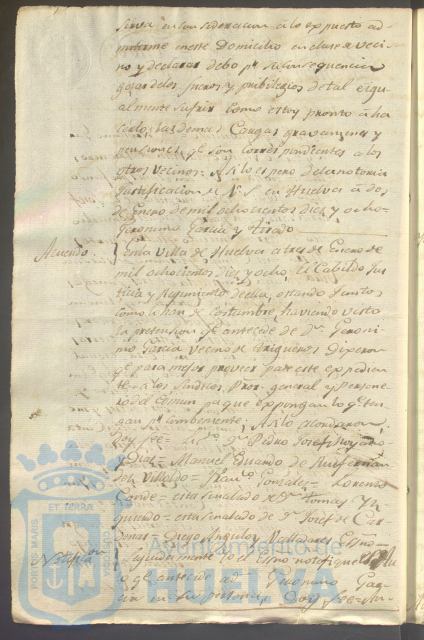 sirva en consideracion a lo expuesto ad-
mitirme en este Domicilio en clase de veci-
no y declarar debo pr su consequencia
gozar de los fueros y pribilegios de tal e igu-
almente sufrir como estoy pronto a ha-
cerlo, las demas Cargas gravamenes y
pensiones qe son correspondientes a los
otros vecinos = Asi lo espero de la notoria
justificacion de V.S. en Huelva a dos
de Enero de mil ochocientos diez y ocho =
Geronimo Garcia y tirado
Acuerdo. En la Villa de Huelva a tres de Enero de
mil ochocientos diez y ocho, el Cabildo Jus-
ticia y Regimiento de ella, estando juntos
como lo han de costumbre, haviendo visto
la pretension qe antecede de Dn Geroni-
mo Garcia vecino de trigueros Dijeron
qe para mejor proveer pase este expedien-
te a los Sindicos Pror general y Persone-
ro del comun pa que expongan lo qe ten-
gan pr combeniente, Asi lo acordaron,
Doy fee = Licdo Dn Pedro Josef
y Diaz = Manuel Eduardo de Ruiz Fernan-
dez Villoldo = Franco Gonzalez = Lorenzo
Conde = esta señalado de Dn Tomas
quierdo = esta señalado de Dn Josef de Car-
denas = Diego Angulo y Valladares Essno =
Notificon Seguidamente Yo el Essno notifique
qe antecede a Dn Geronimo Gar-
cia en su persona, Doy fee = An-
PORTUS MARIS
ET TERRÆ
CUSTODIA
Ayuntamiento de
HUELVA